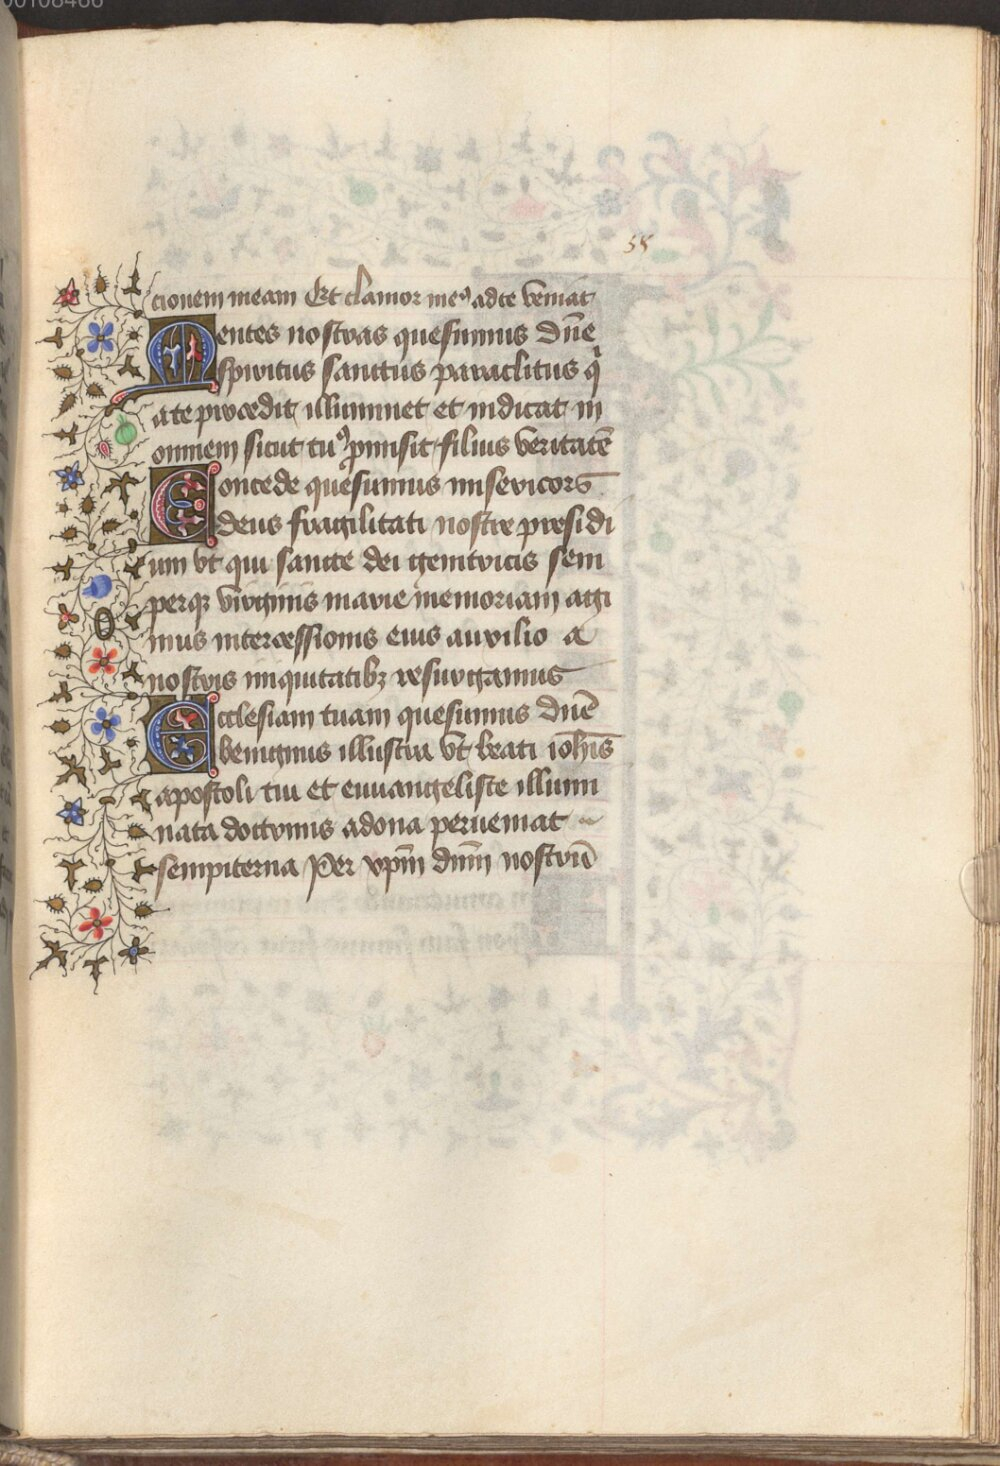 00108466
55
cionem meam Et clamor meꝰ ad te veniat
Mentes nostras quesumus dn̄e
spiritus sanctus paraclitus q̇
a te procedit illuminet et inducat in
omnem sicut tuꝰ ꝓmisit filius veritatē
Concede quesumus misericors
deus fragilitati nostre presidi
um vt qui sancte dei genitricis sem
perqꝫ virginis marie memoriam agi
mus intercessionis eius auxilio a
nostris iniquitatibꝫ resurgamus
Ecclesiam tuam quesumus dn̄e
benignus illustra vt beati ioh̄is
apostoli tui et euuangeliste illumi
nata doctrinis ad dona perueniat
sempiterna Per xp̄m dn̄m nostrū